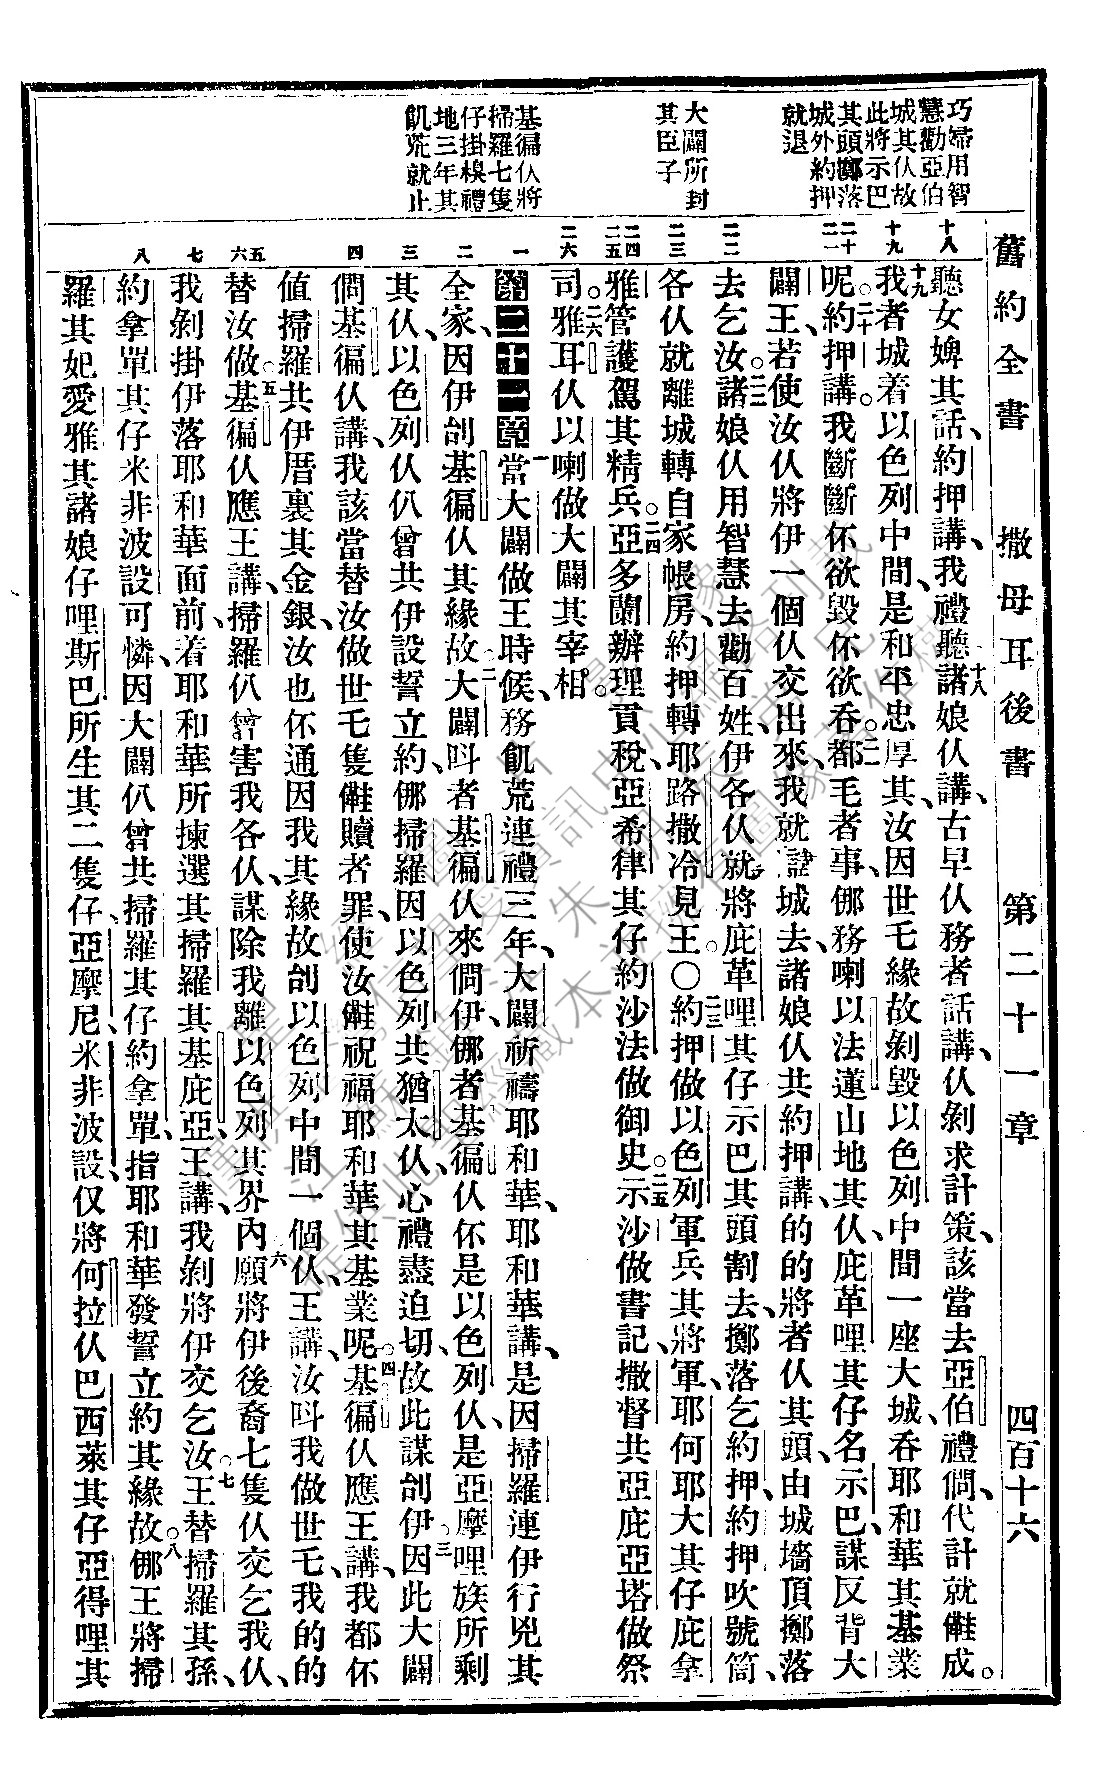 舊約全書　撒母耳後書　第二十一章　四百十六
巧婦用智
慧勸亞伯
城其仈故
此將示巴
其頭擲落
城外約押
就退
大闢所封
其臣子
基徧仈將
掃羅七隻
仔掛槺禮
地三年其
飢荒就止
十八
十九
二十
二一
二二
二三
二四
二五
二六
一
二
三
四
五
六
七
八
聽女婢其話、約押講、我禮聽、十八諸娘仈講、古早仈務者話講、仈剝求計策、該當去亞伯禮僩、代計就𠆧成。
十九我者城着以色列中間、是和平忠厚其、汝因世乇緣故剝毀以色列中間一座大城、吞耶和華其基業
呢。二十約押講、我斷斷伓欲毀伓欲吞、二一都毛者事、倻務喇以法蓮山地其仈、庇革哩其仔名示巴、謀反背大
闢王、若使汝仈將伊一個仈交出來、我就離城去、諸娘仈共約押講、的的將者仈其頭、由城墻頂擲落
去乞汝。二二諸娘仈用智慧去勸百姓、伊各仈就將庇革哩其仔示巴其頭割去、擲落乞約押、約押吹號筒、
各仈就離城轉自家帳房、約押轉耶路撒冷見王。〇二三約押做以色列軍兵其將軍、耶何耶大其仔庇拿
雅管護駕其精兵。二四亞多蘭辦理貢稅、亞希律其仔約沙法做御史。二五示沙做書記、撒督共亞庇亞塔做祭
司。二六雅耳仈以喇做大闢其宰相。
第二十一章一當大闢做王時候、務飢荒連禮三年、大闢祈禱耶和華、耶和華講、是因掃羅連伊行兇其
全家、因伊刣基徧仈其緣故。二大闢呌者基徧仈來僩伊、倻者基徧仈伓是以色列仈、是亞摩哩族所剩
其仈、以色列仈仈曾共伊設誓立約、倻掃羅因以色列共猶太仈、心禮盡迫切、故此謀刣伊。三因此大闢
僩基徧仈講、我該當替汝做世乇隻𠆧贖者罪、使汝𠆧祝福耶和華其基業呢。四基徧仈應王講、我都伓
值掃羅共伊厝裏其金銀、汝也伓通因我其緣故刣以色列中間一個仈、王講、汝呌我做世乇、我的的
替汝做。五基徧仈應王講、掃羅仈曾害我各仈、謀除我離以色列其界內、六願將伊後裔七隻仈交乞我仈、
我剝掛伊落耶和華面前、着耶和華所揀選其掃羅其基庇亞、王講、我剝將伊交乞汝。七王替掃羅其孫、
約拿單其仔米非波設可憐、因大闢仈曾共掃羅其仔約拿單、指耶和華發誓立約其緣故。八倻王將掃
羅其妃愛雅其諸娘仔哩斯巴所生其二隻仔、亞摩尼、米非波設、仅將何拉仈巴西萊其仔亞得哩其